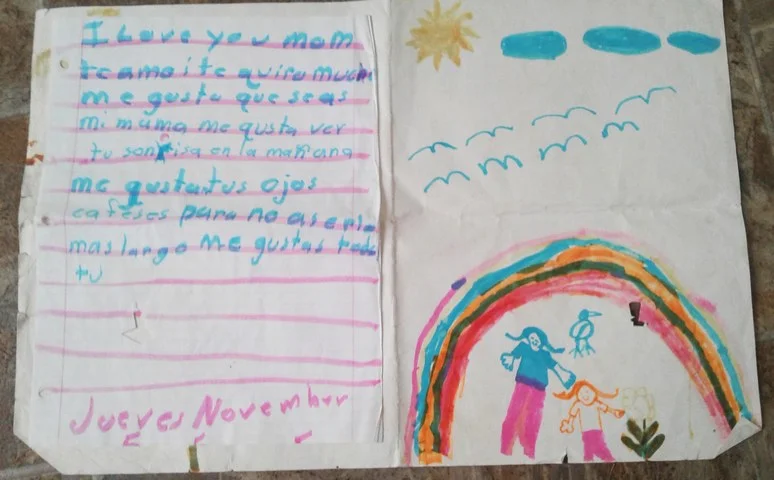 I Love you mom
te amo i te quiro much
me gusta que seas
mi mama me gusta ver
tu sonrisa en la mañana
me gustatus ojos
cafeses para no aserlo
mas largo Me gustas toda
tu
Jueves November